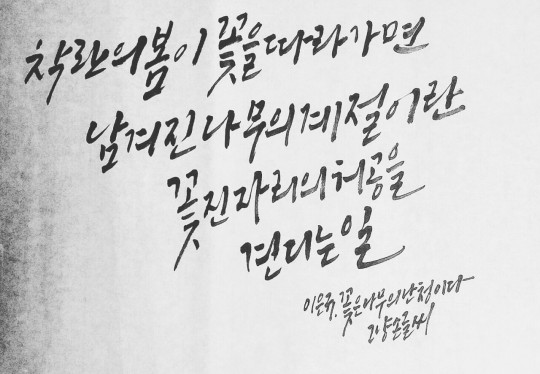 착란의 봄이 꽃을 따라가면
남겨진 나무의 계절이란
꽃 진 자리의 허공을
견디는 일
이은규, 꽃은 나무의 난청이다
고양손글씨